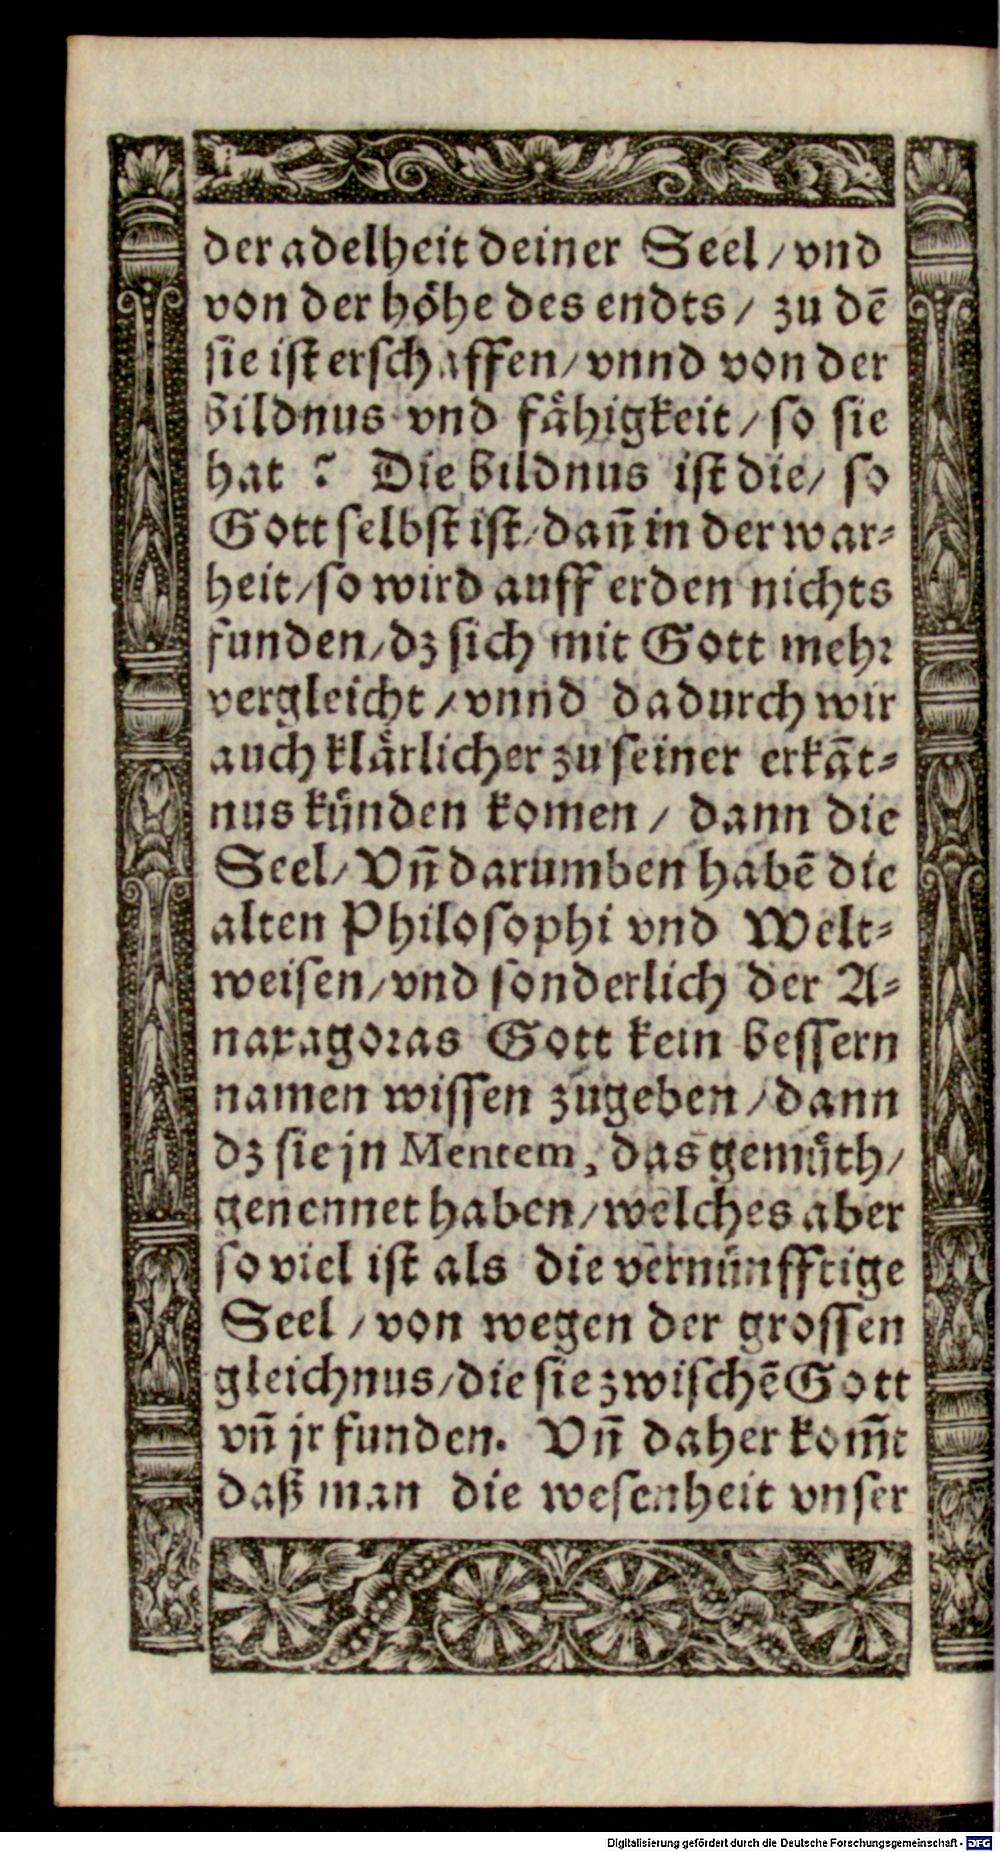 der adelheit deiner Seel / vnd
von der höhe des endts / zu dẽ
sie ist erschaffen / vnnd von der
bildnus vnd fähigkeit / so sie
hat ? Die bildnus ist die / so
Gott selbst ist / dañ in der war-
heit / so wird auff erden nichts
funden / dz sich mit Gott mehr
vergleicht / vnnd dadurch wir
auch klärlicher zu seiner erkãt-
nus künden komen / dann die
Seel / Vñ darumben habẽ die
alten Philosophi vnd Welt-
weisen / vnd sonderlich der A-
naxagoras Gott kein bessern
namen wissen zugeben / dann
dz sie jn Mentem, das gemüth /
genennet haben / welches aber
so viel ist als die vernünfftige
Seel / von wegen der grossen
gleichnus / die sie zwischẽ Gott
vñ jr funden. Vñ daher kom̃t
daß man die wesenheit vnser
Digitalisierung gefördert durch die Deutsche Forschungsgemeinschaft - DFG